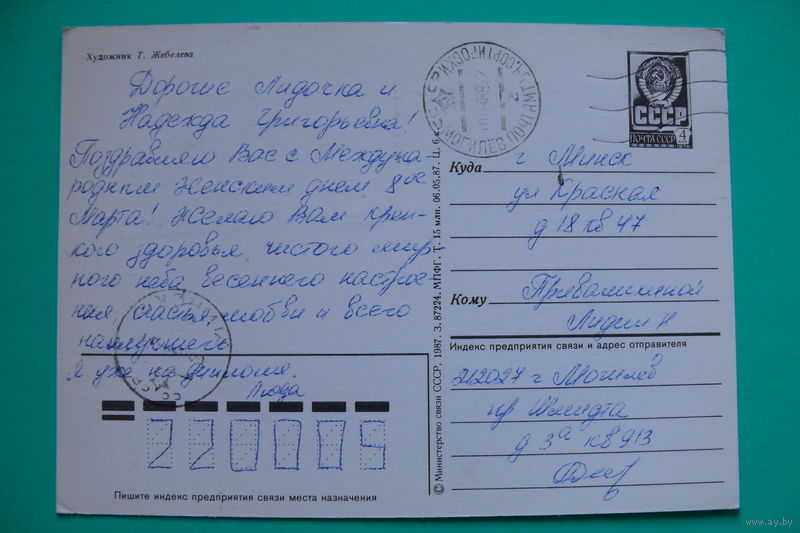 Художник Т. Жебелева
Дорогие Лидочка и
Надежда Григорьевна!
Поздравляю Вас с Междуна
родным Женским днем 8ое
Марта! Желаю Вам креп-
кого здоровья, чистого мир
ного неба, весеннего настрое-
ния, счастья, любви и всего
наилучшего.
Я уже на дипломе.
Люда
220005
Пишите индекс предприятия связи места назначения
© Министерство связи СССР, 1987. З. 87224. МПФГ. Т. 15 млн. 06.05.87. Ц. 6 к.
ПОЧТА СССР
4
Куда г Минск
ул Красная
д 18 кв 47
Кому Привалихиной
Лидии Н
Индекс предприятия связи и адрес отправителя
212027 г Могилев
пр Шмидта
д 3а к8 913
www.ay.by